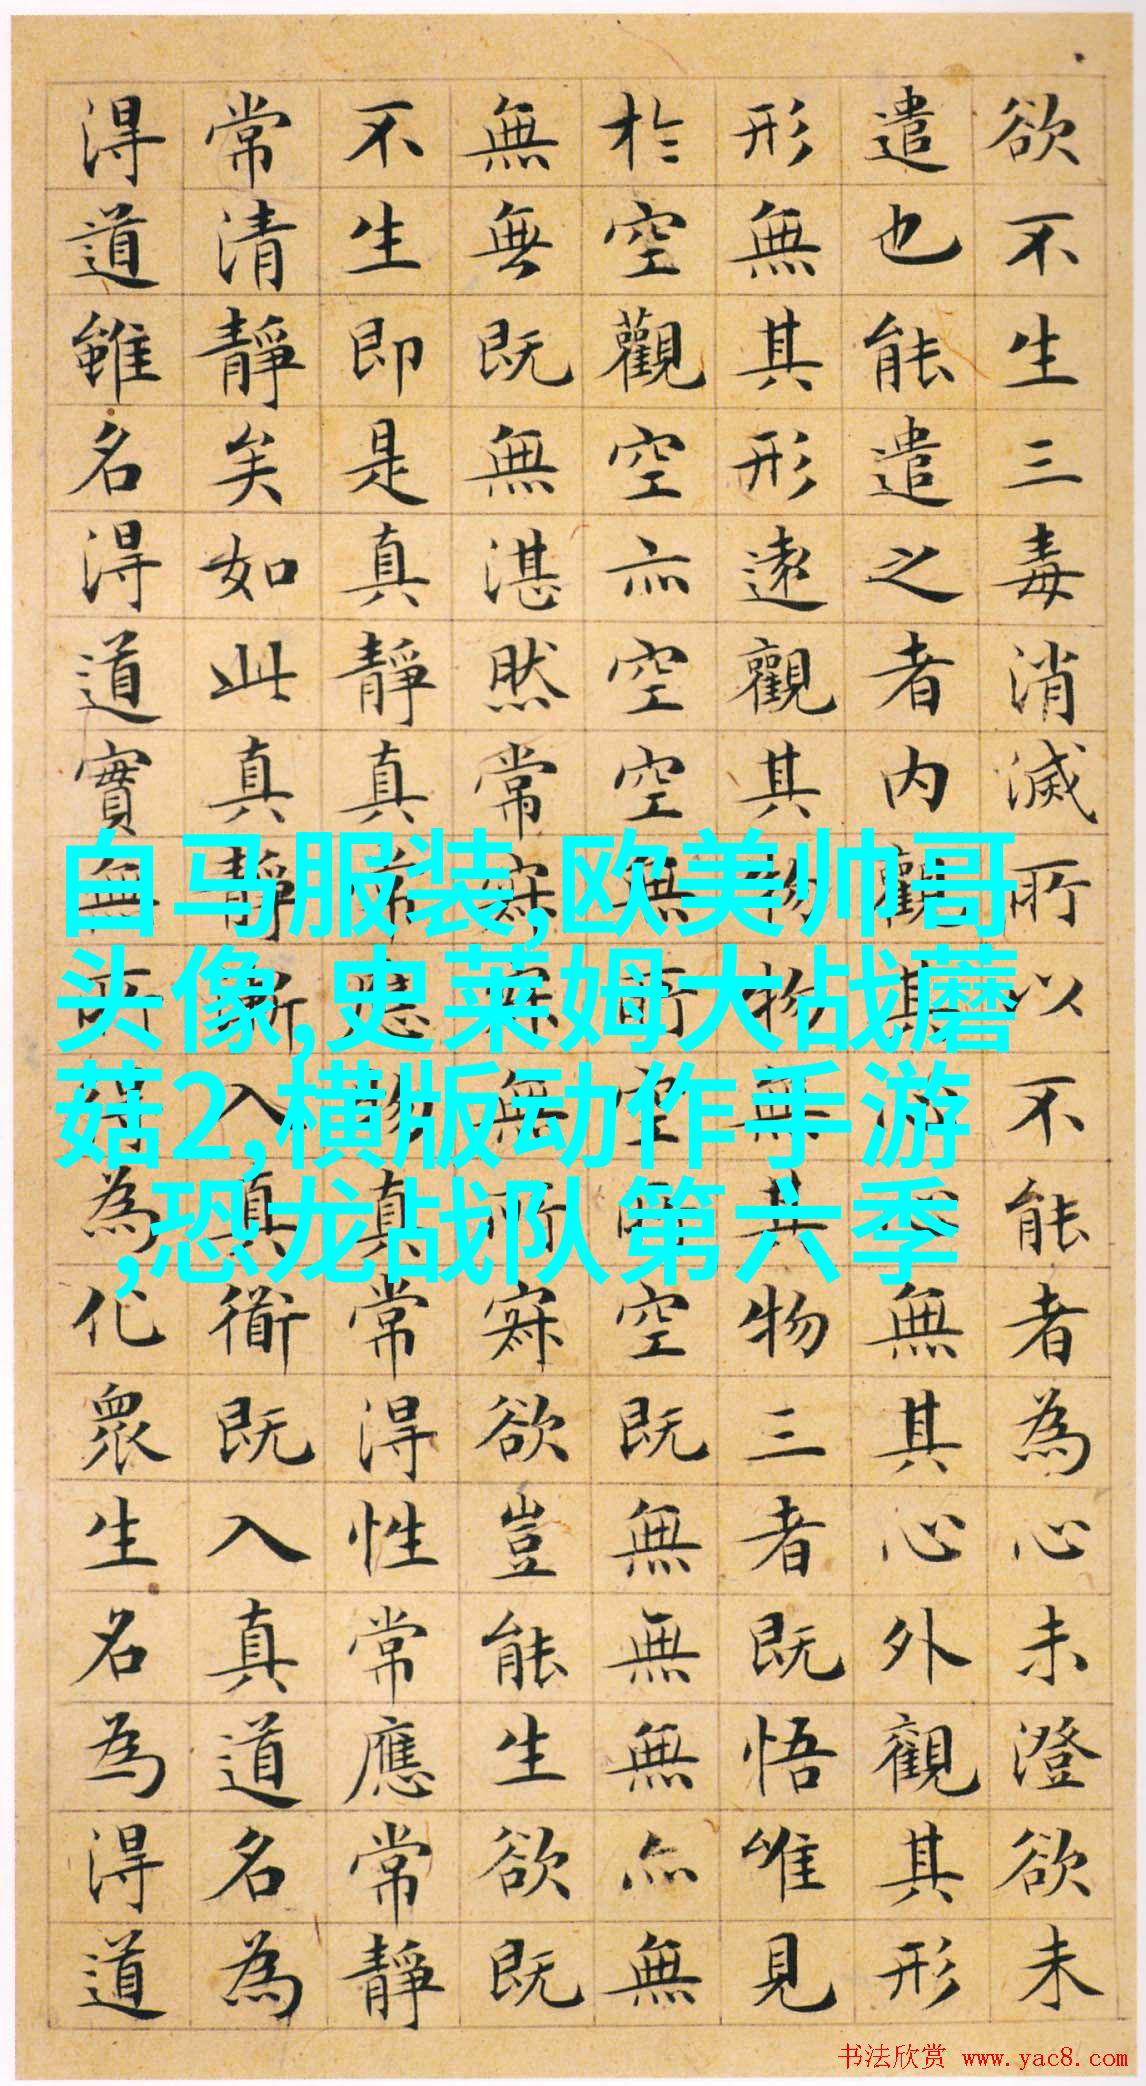 欲不生三毒消滅所以不能者為心未澄欲未
遣也能遣之者内觀其心心無其心外觀其形
形無其形遠觀其物物無其物三者既悟唯見
於空觀空亦空空無所空所空既無無無亦無
無無既無湛然常寂寂無所寂欲豈能生欲既
不生即是真靜真常應物真常得性常應常靜
常清靜矣如此真靜漸入真道既入真道名為
得道雖名得道實無所得為化眾生名為得道
白马服装,欧美帅哥
头像,史莱姆大战蘑
菇2,横版动作手游
,恐龙战队第六季
书法欣赏 www.yac8.com